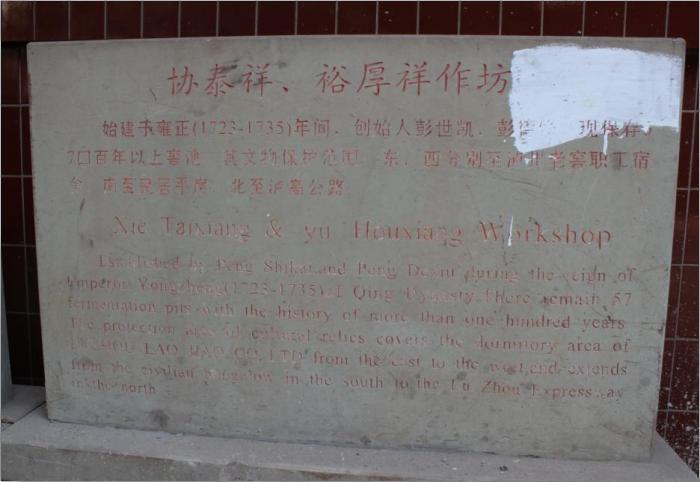 协泰祥、裕厚祥作坊
始建于雍正(1723-1735)年间，创始人彭世凯、彭 现保存
口百年以上窖池 其文物保护范围 东、西分别至泸州老窖职工宿
舍 南至民居平房 北至泸 公路
Xie Taixiang & yu Houxiang Workshop
Established by Peng Shikai and Peng Dexiu during the reign of
Emperor Yongzheng(1723-1735) Qing Dynasty.There remain 57
fermentation pits with the history of more than one hundred years
The protection area of cultural relics covers the dormitory area of
LUZHOU LAO JIAO CO., LTD from the east to the west,end extends
from the civilian bungalow in the south to the Lu Zhou Expressway
in the north